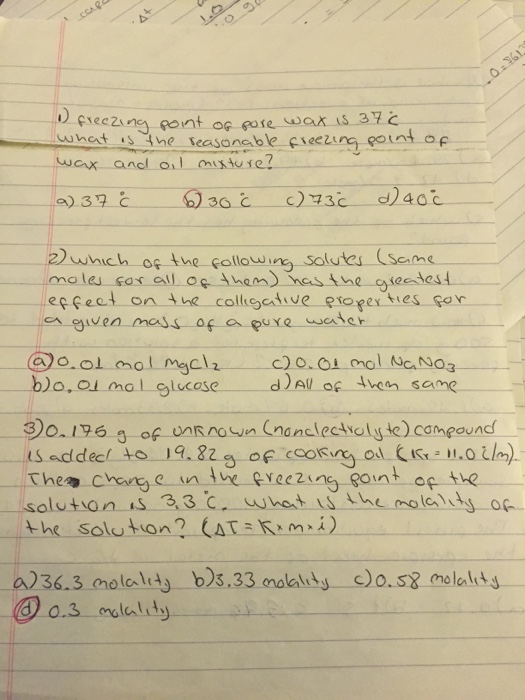 Δt
1) freezing point of pure wax is 37°c
what is the reasonable freezing point of
wax and oil mixture?
a) 37°c b) 30°c c) 73°c d) 40°c
2) which of the following solutes (same
moles for all of them) has the greatest
effect on the colligative properties for
a given mass of a pure water
a) 0.01 mol MgCl2 c) 0.01 mol NaNO3
b) 0.01 mol glucose d) All of them same
3) 0.175 g of unknown (nonelectrolyte) compound
is added to 19.82 g of cooking oil (Kf = 11.0 °c/m).
The change in the freezing point of the
solution is 3.3°c. what is the molality of
the solution? (ΔT = K×m×i)
a) 36.3 molality b) 3.33 molality c) 0.58 molality
d) 0.3 molality